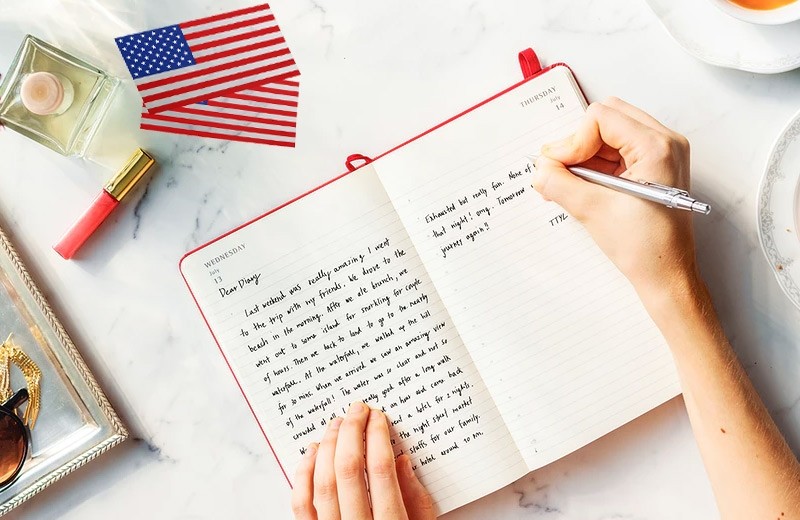 WEDNESDAY
July
13
Dear Diary
Last weekend was really amazing. I went
to the trip with my friends. We drove to the
beach in the morning. After we ate brunch, we
went out to some island for snorkling for couple
of hours. Then we back to land to go to the nearby
waterfall. At the waterfall, we walked up the hill
for 30 mins. When we arrived we saw an amazing view
of the waterfall! The water was so clear and not so
crowded at all. really good after a long walk
an hour and came back
a hotel for 2 nights.
to the night street market
stuffs for our family.
hotel around 10 PM.
THURSDAY
July
14
Exhausted but really fun. None of
that night! omg. Tomorrow
journey again!!
TTYL